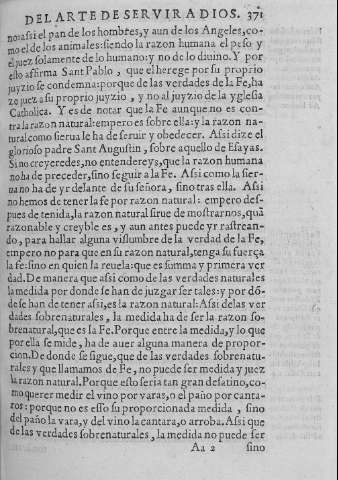 DEL ARTE DE SERVIR A DIOS. 371
no: assi el pan de los hombres, y aun de los Angeles, co-
mo el de los animales: siendo la razon humana el peso y
el juez solamente de lo humano: y no de lo diuino. Y por
esso affirma Sant Pablo, que el herege por su proprio
juyzio se condemna: porque de las verdades de la Fe, ha
ze juez a su proprio juyzio, y no al juyzio de la yglesia
Catholica. Y es de notar que la Fe aunque no es con-
tra la razon natural: empero es sobre ella: y la razon na-
tural como sierua le ha de seruir y obedecer. Assi dize el
glorioso padre Sant Augustin, sobre aquello de Esayas.
Si no creyeredes, no entendereys, que la razon humana
no ha de preceder, sino seguir a la Fe. Assi como la sier-
ua no ha de yr delante de su señora, sino tras ella. Assi
no hemos de tener la fe por razon natural: empero des-
pues de tenida, la razon natural sirue de mostrarnos, quã
razonable y creyble es, y aun antes puede yr rastrean-
do, para hallar alguna vislumbre de la verdad de la Fe,
empero no para que en su razon natural, tenga su fuerça
la fe: sino en quien la reuela: que es summa y primera ver
dad. De manera que assi como de las verdades naturales
la medida por donde se han de juzgar ser tales: y por dõ-
de se han de tener assi, es la razon natural: Assi de las ver
dades sobrenaturales, la medida ha de ser la razon so-
brenatural, que es la Fe. Porque entre la medida, y lo que
por ella se mide, ha de auer alguna manera de propor-
cion. De donde se sigue, que de las verdades sobrenatu-
rales y que llamamos de Fe, no puede ser medida y juez
la razon natural. Porque esso seria tan gran desatino, co-
mo querer medir el vino por varas, o el paño por canta-
ros: porque no es esso su proporcionada medida, sino
del paño la vara, y del vino la cantara, o arroba. Assi que
de las verdades sobrenaturales, la medida no puede ser
Aa 2 sino